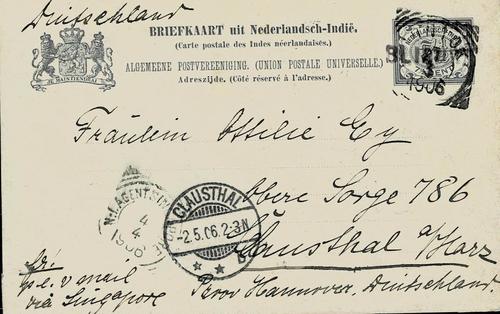 Duitschland
BRIEFKAART uit Nederlandsch-Indië.
(Carte postale des Indes néerlandaises.)
ALGEMEENE POSTVEREENIGING. (UNION POSTALE UNIVERSELLE.)
Adreszijde. (Côté réservé à l'adresse.)
JE MAINTIENDRAI
CENT
1906
Fräulein Ottilie Ey
Obere Sorge 786
Clausthal a/Harz
Prov Hannover, Duitschland.
N.I. AGENT
4
4
1906
CLAUSTHAL
-2.5.06.2-3N
p. e. v mail
via Singapore